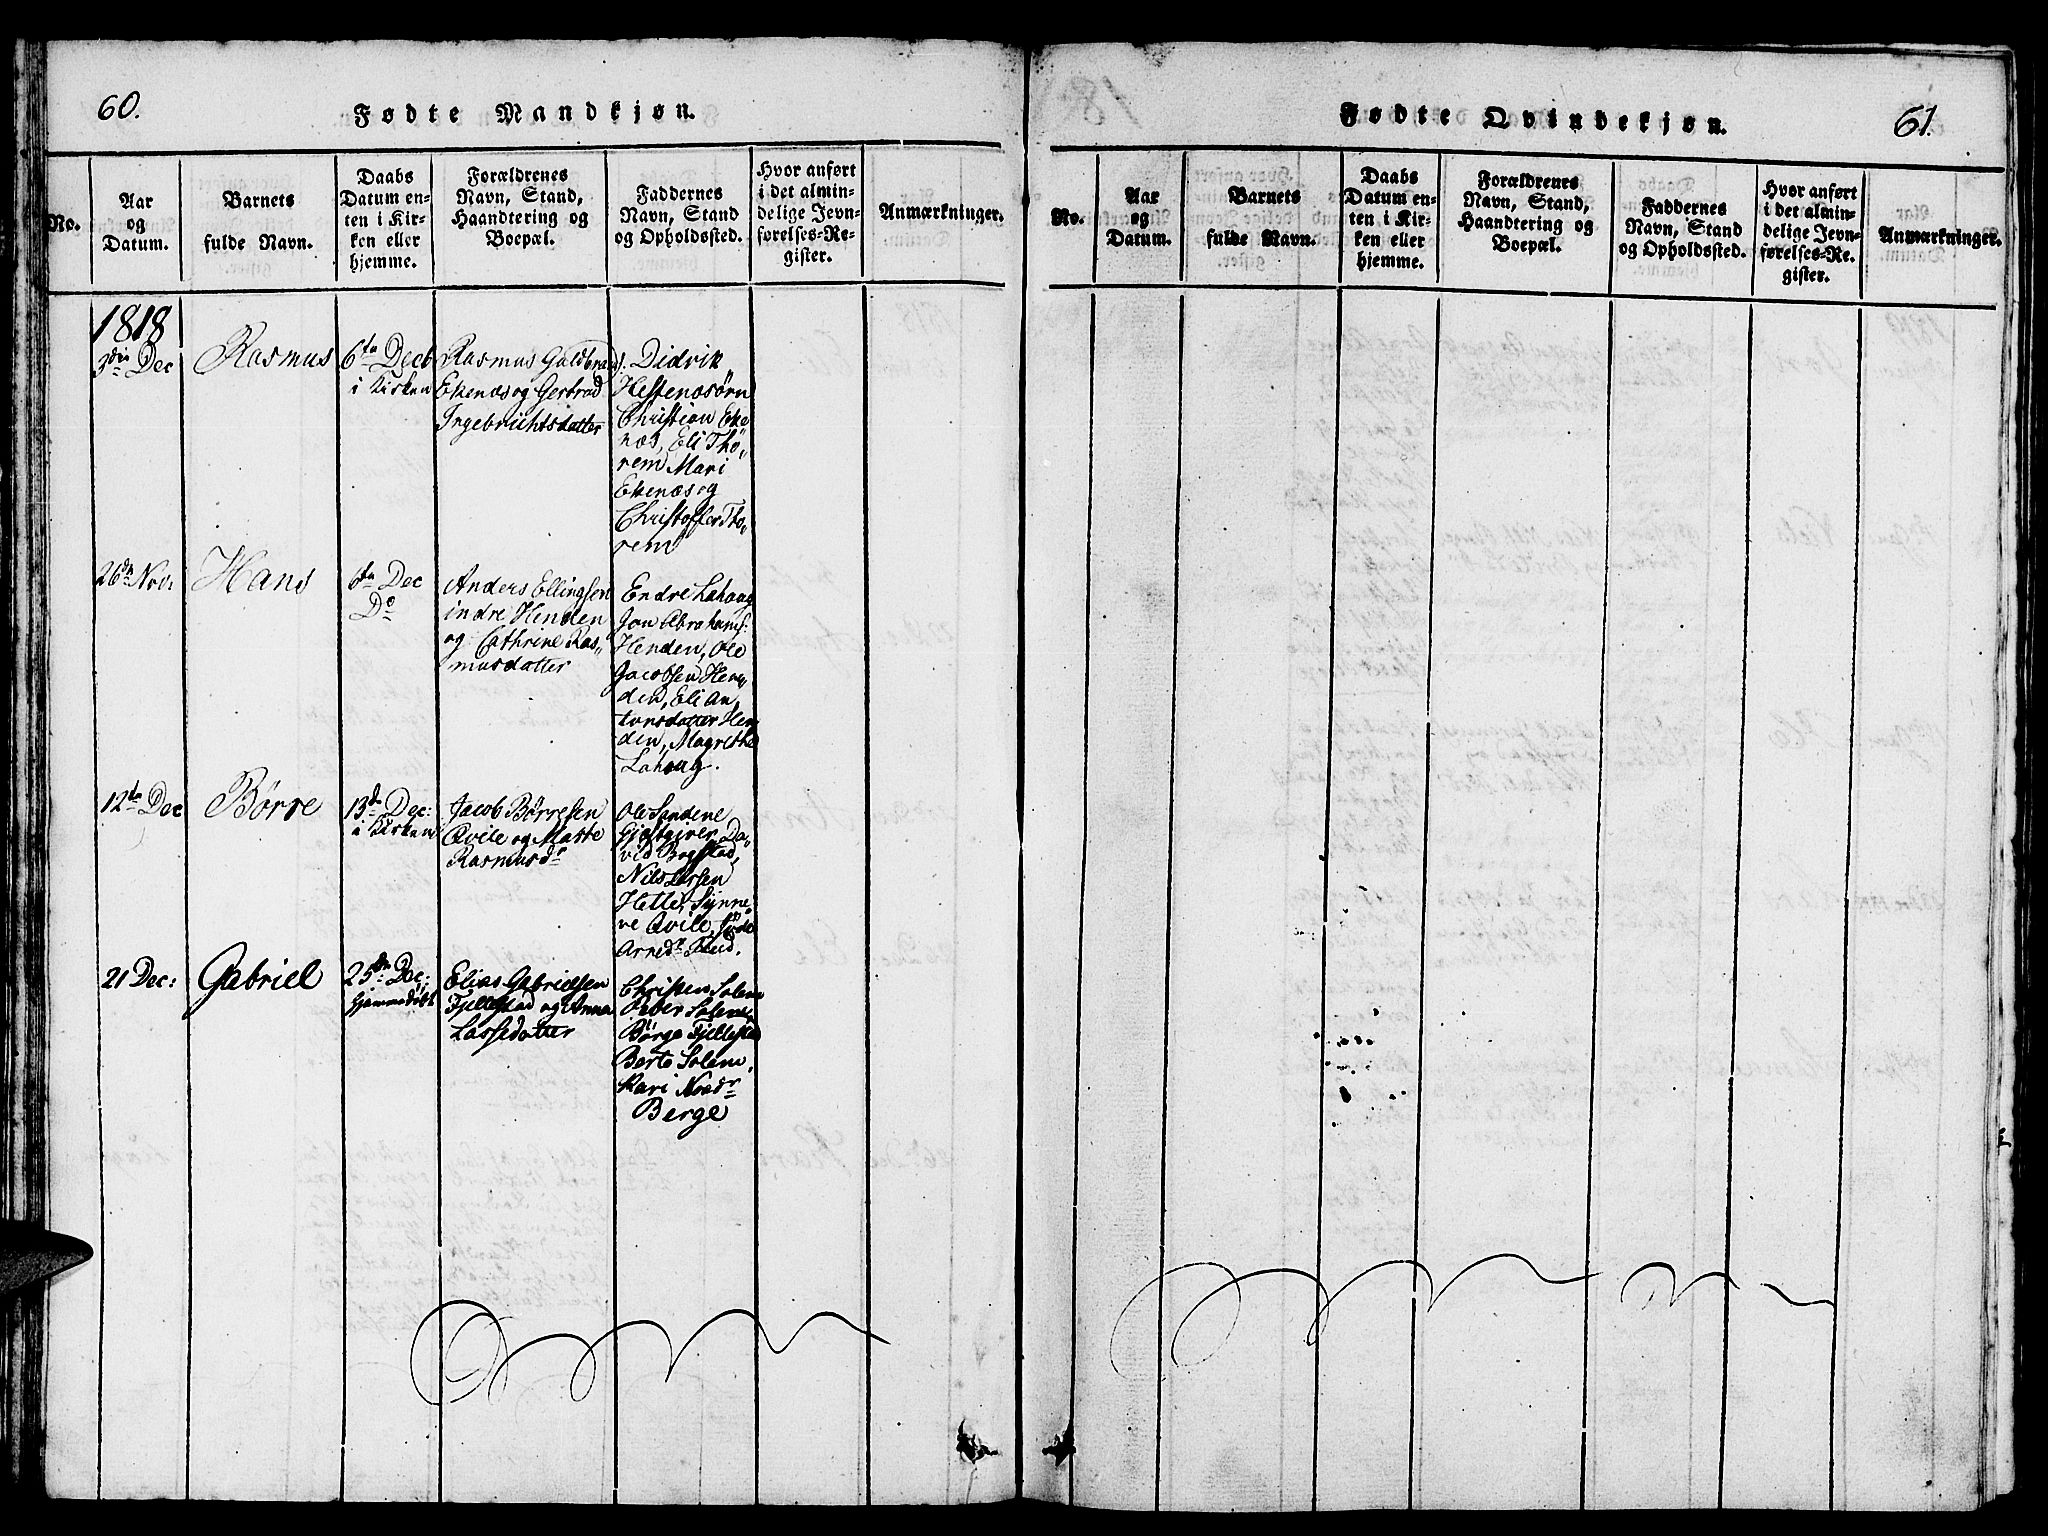 60.
Fødte Mandkjøn.
No.
Aar
og
Datum.
Barnets
fulde Navn.
Daabs
Datum en-
ten i Kir-
ken eller
hjemme.
Forældrenes
Navn, Stand,
Haandtering og
Boepæl.
Faddernes
Navn, Stand
og Opholdssted.
Hvor anført
i det almin-
delige Jevn-
førelses-Re-
gister.
Anmærkninger.
1818
3die Dec
Rasmus
6te Decb
i Kirken
Rasmus Guldbrands.
Ekenæs og Gertrud
Ingebrichtsdatter
Didrik
Hestenæsørn
Christian Eke
næs, Eli Tho„
rem Mari
Ekenæs og
Christoffer Tho„
rem
26de Novr
Hans
6te Dec
Do
Anders Ellingsen
indre Hinden
og Cathrine Ras„
musdatter
Endre Lahaug
Jon Abrahams:
Henden, Ole
Jacobsen Hen„
den, Eli An„
tonsdatter Hen
den, Magrethe
Lahaug.
12te Dec
Børre
13de Dec:
i Kirken
Jacob Børresen
Qvile og Matte
Rasmusdr
Ole Sandene
Gjestgiver, Da„
vid Bogstad,
Nils Larsen
Hette, Synne„
ve Qvile,
Arnedr
21 Dec:
Gabriel
25de Dec:
hjemmedøbt
Elias Gabrielsen
Fjellestad og Anna
Lassedatter
Christen Solem
Peder Solem,
Børge Fjellestad
Berte Solem,
Kari
Berge
Fødte Qvindekjøn.
61.
No.
Aar
og
Datum.
Barnets
fulde Navn.
Daabs
Datum en-
ten i Kir-
ken eller
hjemme.
Forældrenes
Navn, Stand,
Haandtering og
Boepæl.
Faddernes
Navn, Stand
og Opholdssted.
Hvor anført
i det almin-
delige Jevn-
førelses-Re-
gister.
Anmærkninger.